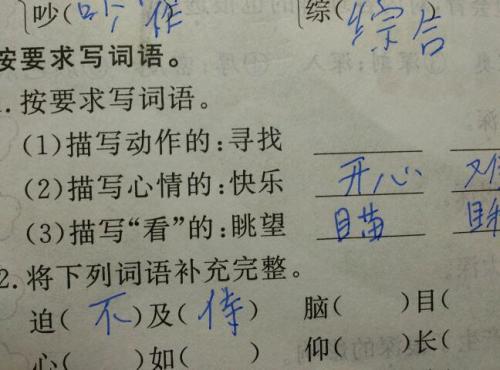 吵(吵 作 综(综合
按要求写词语。
1.按要求写词语。
(1)描写动作的:寻找
(2)描写心情的:快乐 开心
(3)描写“看”的:眺望 瞄
2.将下列词语补充完整。
迫(不)及(待) 脑( )目(
心( )如( ) 仰( )长(